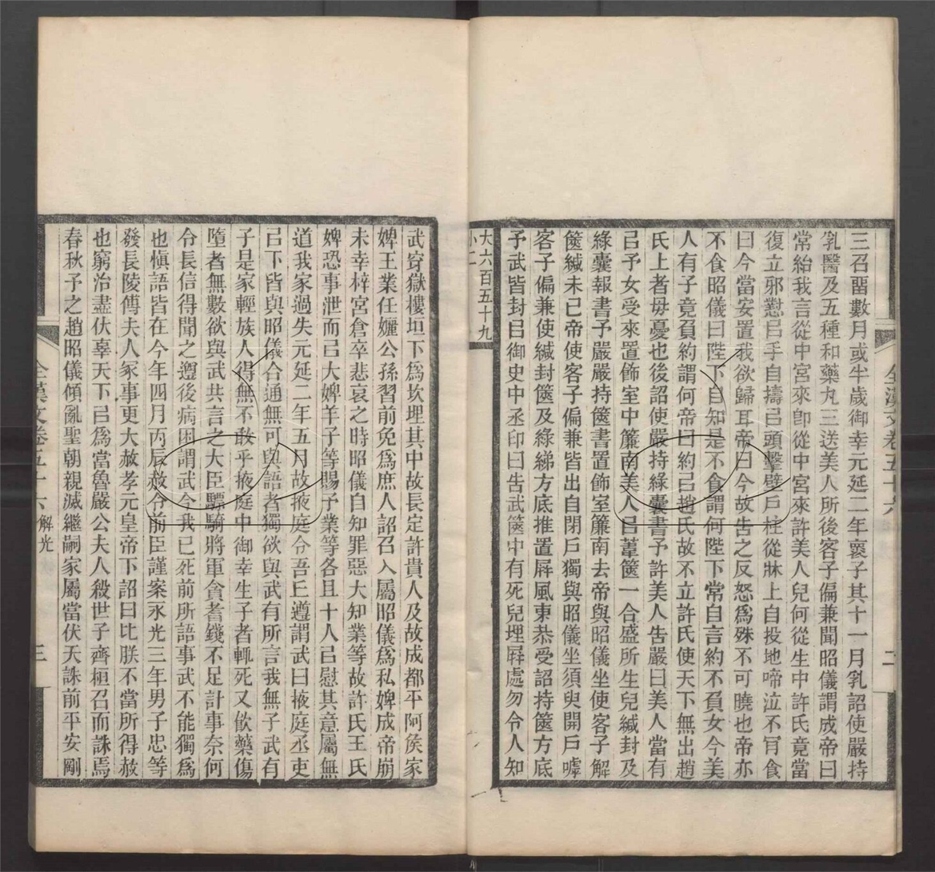 全漢文卷五十六
二
三召畱數月或半歲御幸元延二年裹子其十一月乳詔使嚴持
乳醫及五種和藥丸三送美人所後客子偏兼聞昭儀謂成帝曰
常紿我言從中宮來卽從中宮來許美人兒何從生中許氏竟當
復立邪懟㠯手自擣㠯頭擊壁戶柱從牀上自投地啼泣不肎食
曰今當安置我欲歸耳帝曰今故告之反怒爲殊不可曉也帝亦
不食昭儀曰陛下自知是不食謂何陛下常自言約不負女今美
人有子竟負約謂何帝曰約㠯趙氏故不立許氏使天下無出趙
氏上者毋憂也後詔使嚴持綠囊書予許美人告嚴曰美人當有
㠯予女受來置飾室中簾南美人㠯葦篋一合盛所生兒緘封及
綠囊報書予嚴嚴持篋書置飾室簾南去帝與昭儀坐使客子解
篋緘未已帝使客子偏兼皆出自閉戶獨與昭儀坐須臾開戶嘑
客子偏兼使緘封篋及綠綈方底推置屛風東恭受詔持篋方底
予武皆封㠯御史中丞印曰告武篋中有死兒埋屛處勿令人知
大六百五十九
小二
武穿獄樓垣下爲坎埋其中故長定許貴人及故成都平阿侯家
婢王業任孋公孫習前免爲庶人詔召入屬昭儀爲私婢成帝崩
未幸梓宮倉卒悲哀之時昭儀自知罪惡大知業等故許氏王氏
婢恐事泄而㠯大婢羊子等賜予業等各且十人㠯慰其意屬無
道我家過失元延二年五月故掖庭令吾丘遵謂武曰掖庭丞吏
㠯下皆與昭儀合通無可與語者獨欲與武有所言我無子武有
子是家輕族人得無不敢乎掖庭中御幸生子者輒死又飮藥傷
墮者無數欲與武共言之大臣驃騎將軍貪耆錢不足計事奈何
令長信得聞之遵後病困謂武今我已死前所語事武不能獨爲
也愼語皆在今年四月丙辰赦令前臣謹案永光三年男子忠等
發長陵傅夫人冢事更大赦孝元皇帝下詔曰比朕不當所得赦
也窮治盡伏辜天下㠯爲當魯嚴公夫人殺世子齊桓召而誅焉
春秋予之趙昭儀傾亂聖朝親滅繼嗣家屬當伏天誅前平安剛
全漢文卷五十六 解光
三